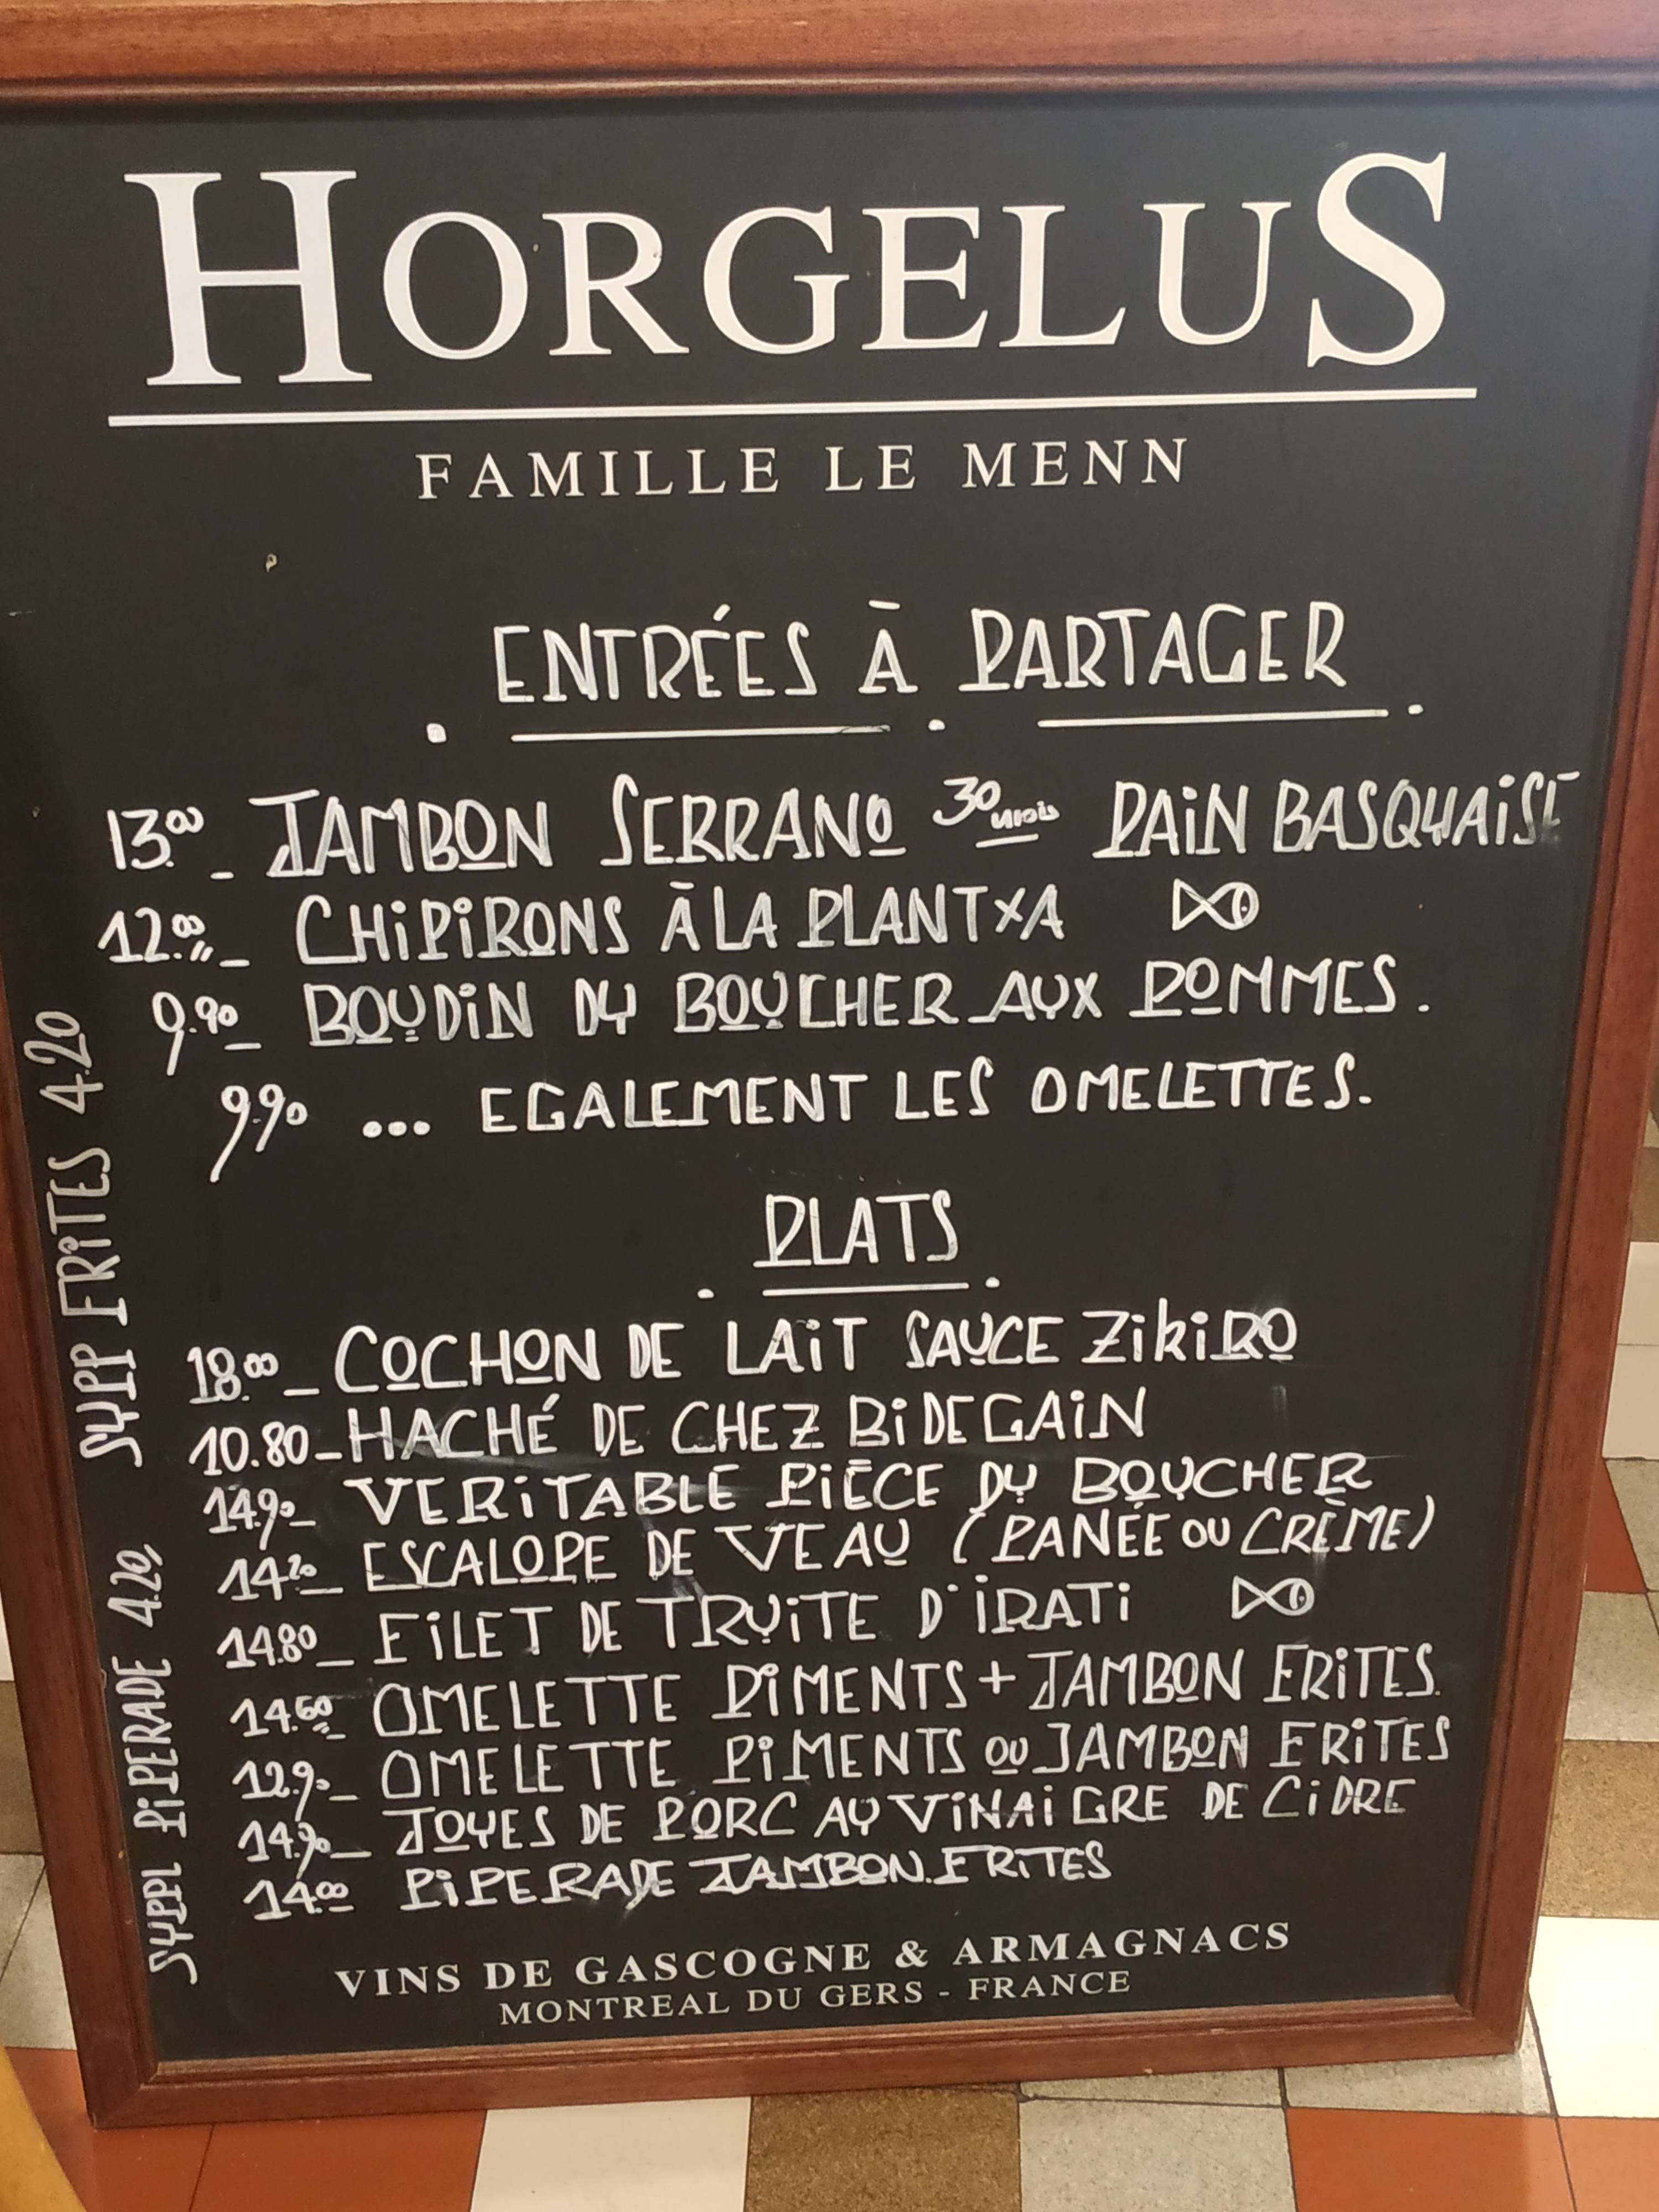 HORGELUS
FAMILLE LE MENN
ENTRÉES À PARTAGER
13.00 _ JAMBON SERRANO 30 mois PAIN BASQUAISE
12.00 _ CHIPIRONS À LA PLANTXA
9.90 _ BOUDIN DU BOUCHER AUX POMMES.
9.90 ... EGALEMENT LES OMELETTES.
PLATS
18.00 _ COCHON DE LAIT SAUCE ZIKIRO
10.80 _ HACHÉ DE CHEZ BIDEGAIN
14.90 _ VERITABLE PIÈCE DU BOUCHER
14.20 _ ESCALOPE DE VEAU (PANÉE OU CRÈME)
14.80 _ FILET DE TRUITE D'IRATI
14.60 _ OMELETTE PIMENTS + JAMBON FRITES.
12.90 _ OMELETTE PIMENTS OU JAMBON FRITES
14.90 _ JOUES DE PORC AU VINAIGRE DE CIDRE
14.00 PIPERADE JAMBON. FRITES
SUPP FRITES 4.20
SUPPL PIPERADE 4.20
VINS DE GASCOGNE & ARMAGNACS
MONTREAL DU GERS - FRANCE